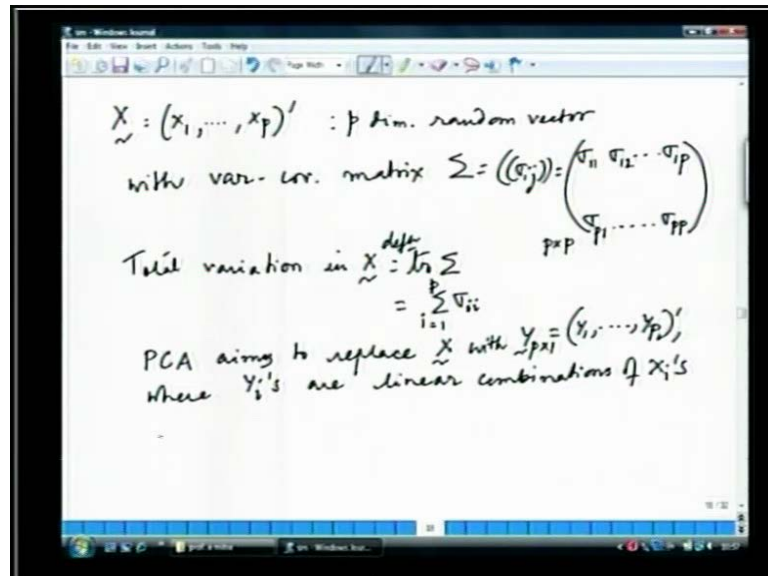 sm - Windows Journal
File Edit View Insert Actions Tools Help
Page Width
X̰ : (X₁, ..., Xp)' : p dim. random vector
with var-cov. matrix Σ = ((σij)) = (σ11 σ12 ... σ1p
σp1 ..... σpp)
p×p
Total variation in X̰ defn = tr Σ
= Σ i=1 p σii
PCA aims to replace X̰ with Y̰ p×1 = (Y₁, ..., Yp)',
where Yi's are linear combinations of Xi's
sm - Windows Jour...